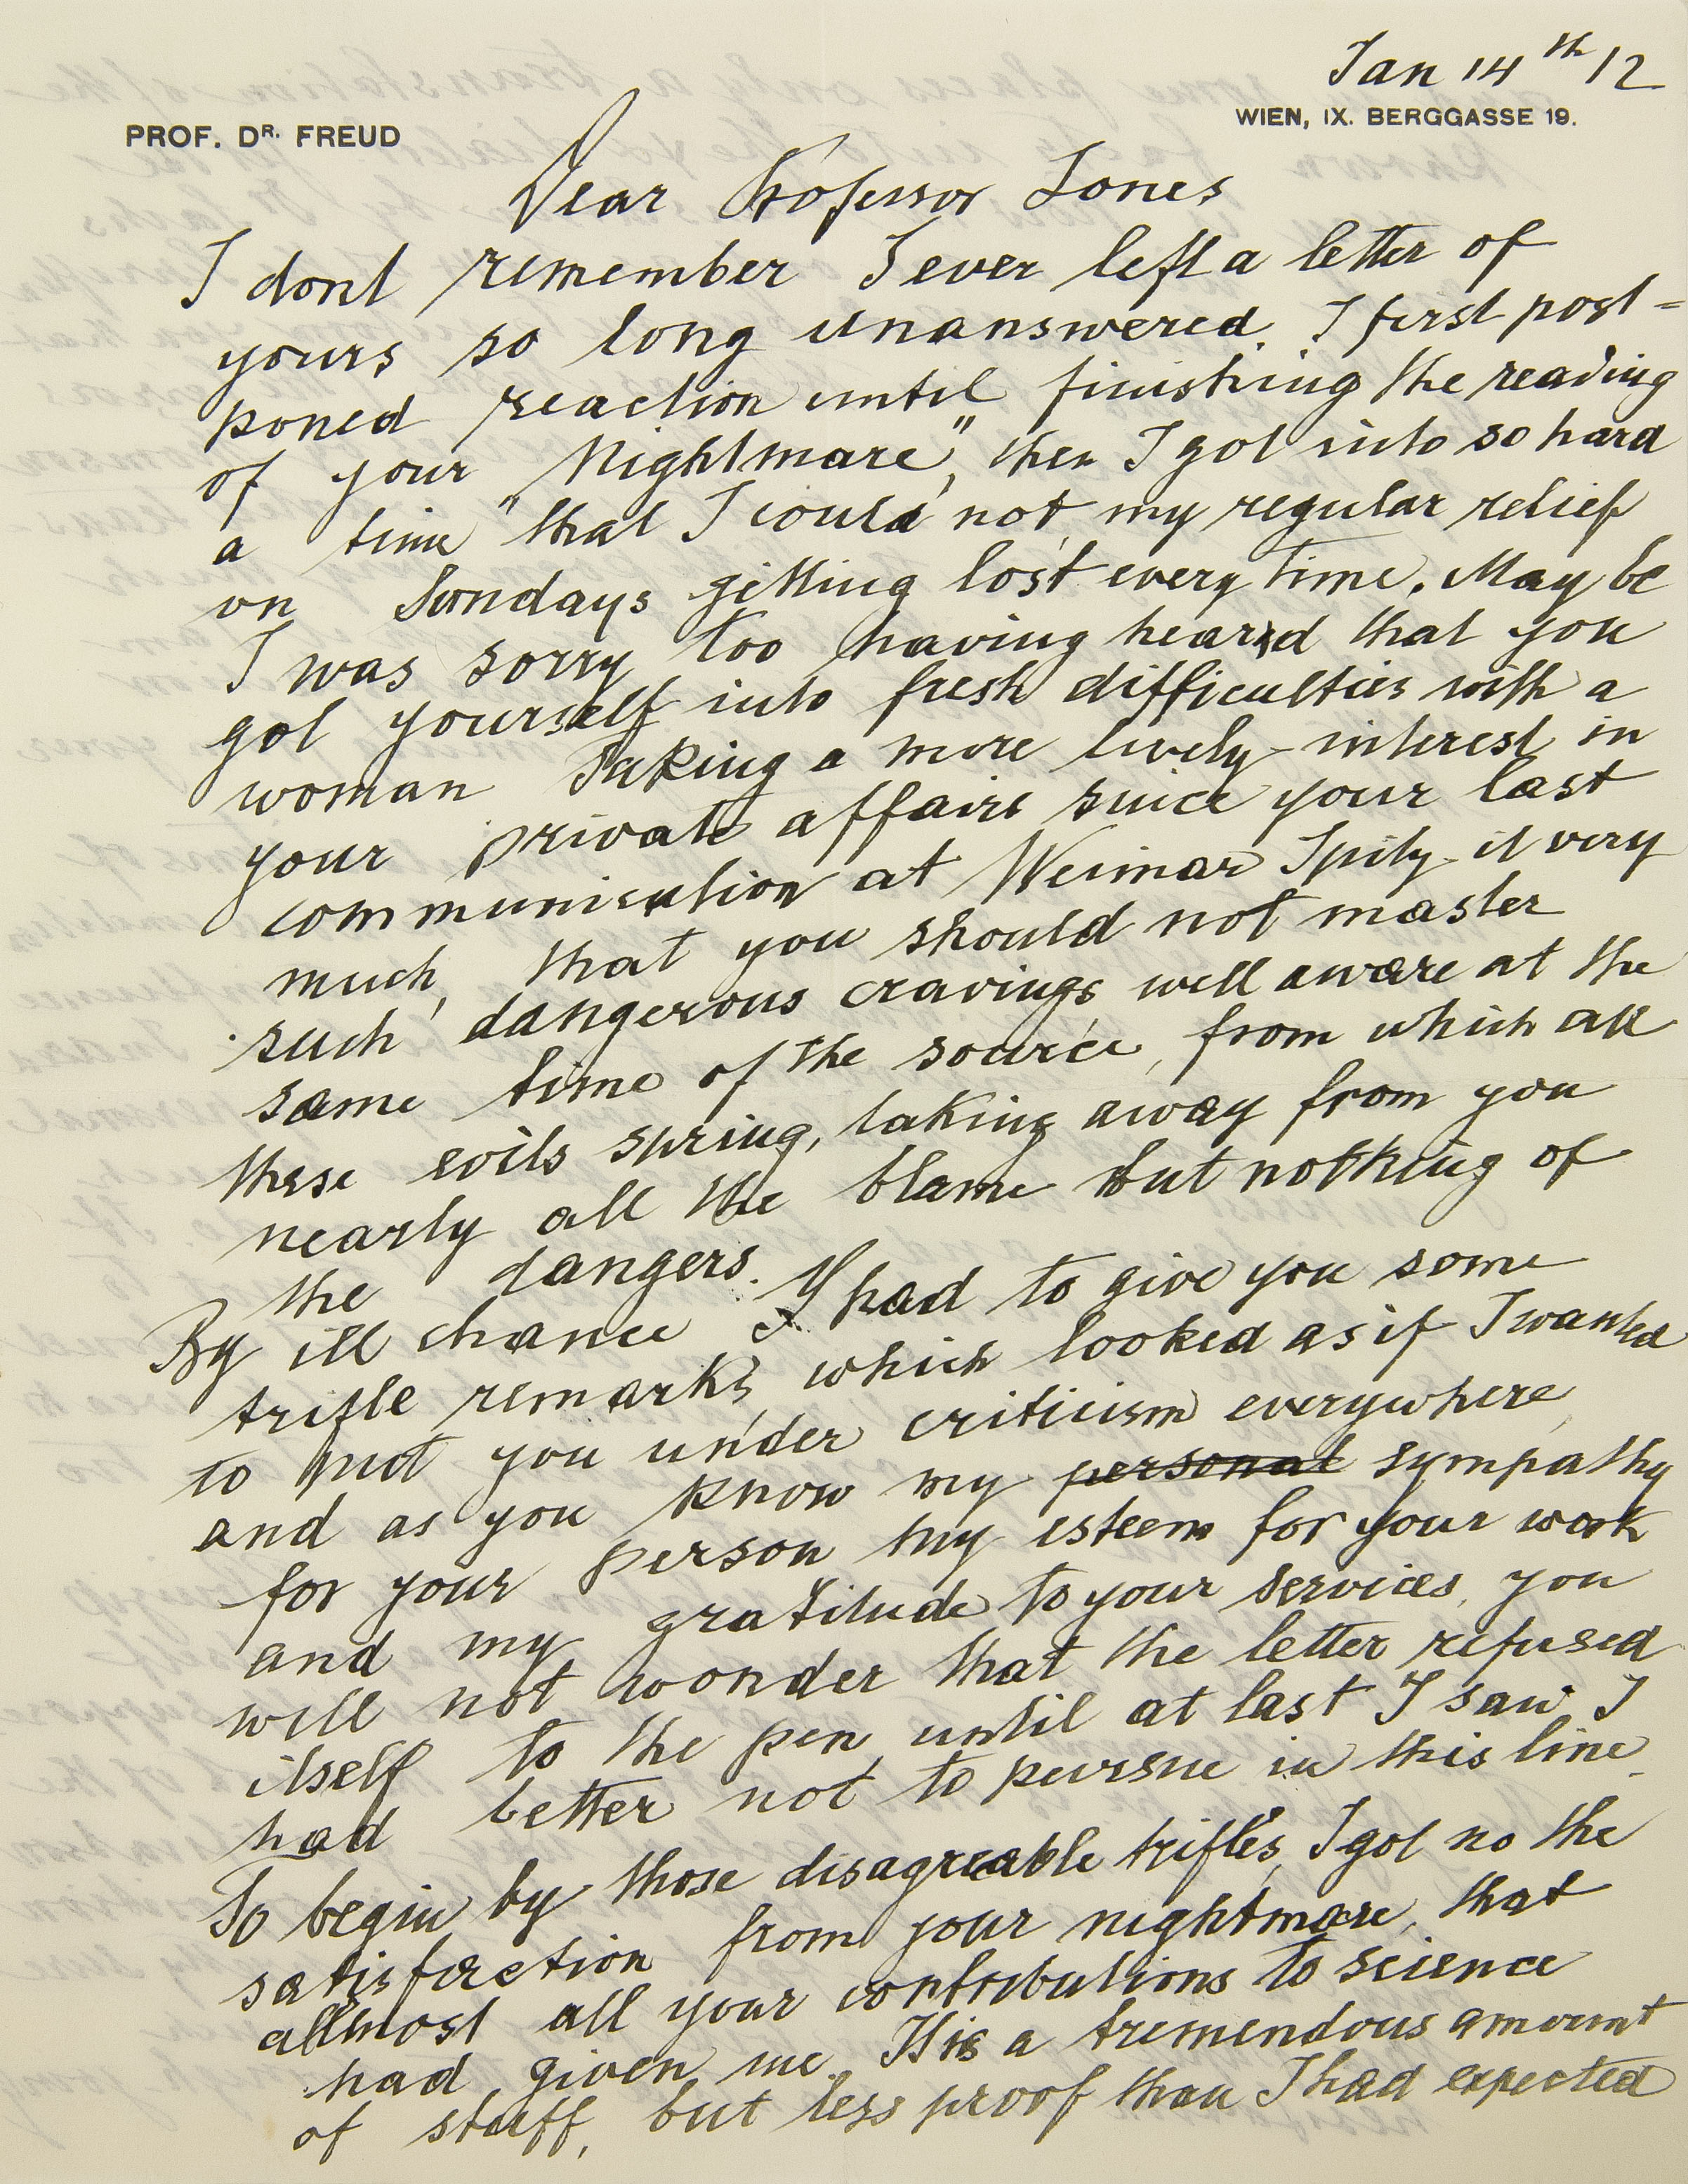 Jan 14th 12
PROF. DR. FREUD
WIEN, IX. BERGGASSE 19.
Dear Professor Jones
I dont remember I ever left a letter of
yours so long unanswered. I first post-
poned reaction until finishing the reading
of your Nightmare", then I got into so hard
a time "that I could not, my regular relief
on Sundays getting lost every time. May be
I was sorry too having heard that you
got yourself into fresh difficulties with a
woman taking a more lively interest in
your private affairs since your last
communication at Weimar I pity it very
much, that you should not master
such dangerous cravings, well aware at the
same time of the source, from which all
these evils spring, taking away from you
nearly all the blame but nothing of
the dangers.
By ill chance I had to give you some
trifle remarks, which looked as if I wanted
to put you under criticism everywhere,
and as you know my personal sympathy
for your person my esteem for your work
and my gratitude to your services, you
will not wonder that the letter refused
itself to the pen, until at last I saw I
had better not to persue in this line.
To begin by those disagreable trifles, I got no the
satisfaction from your nightmare, that
allmost all your contributions to science
had given me. It is a tremendous amount
of stuff, but less proof than I had expected